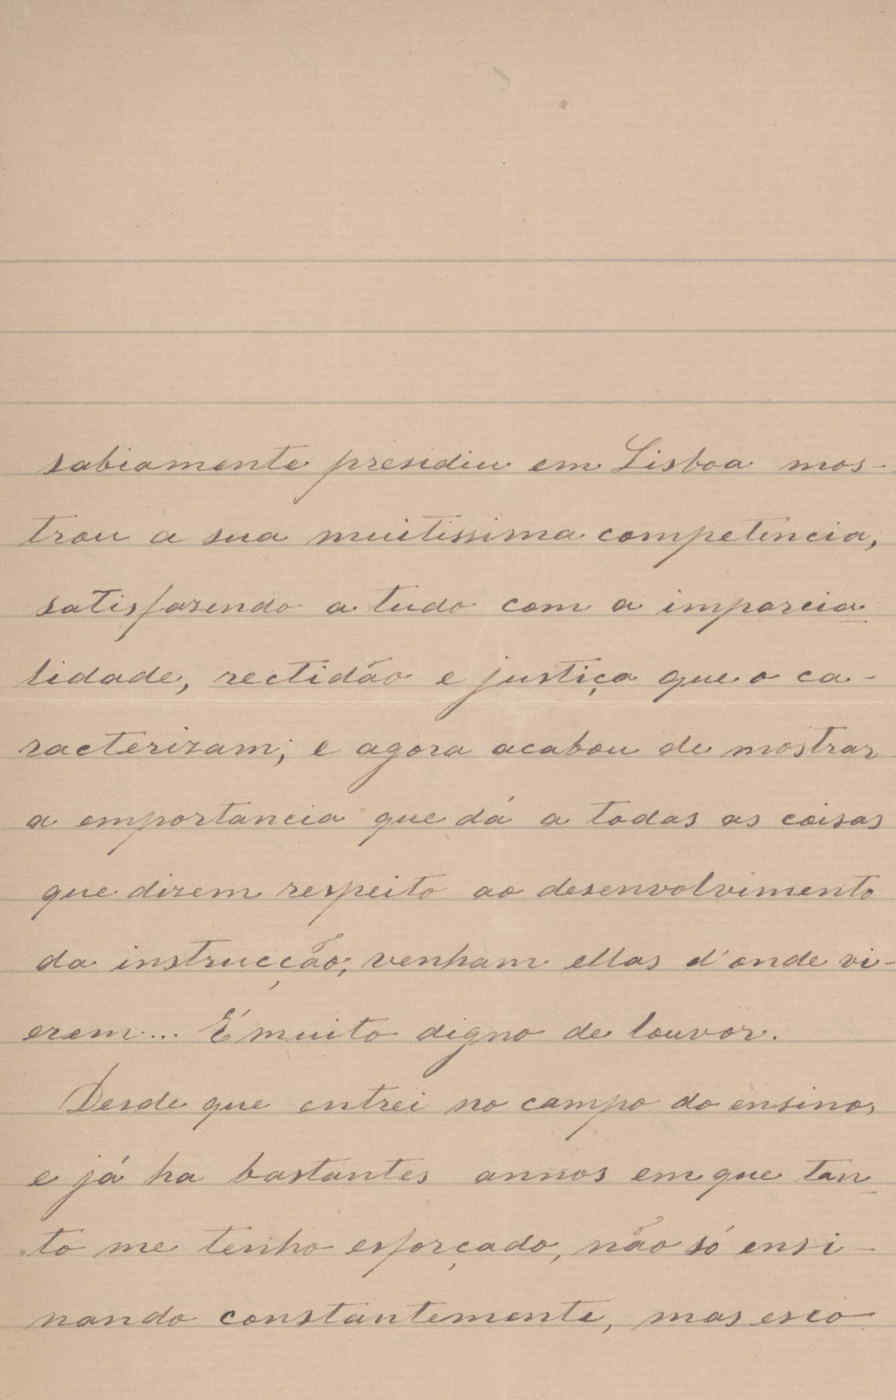 sabiamente presidiu em Lisboa mos-
trou a sua muitissima competencia,
satisfazendo a tudo com a imparcia-
lidade, rectidão e justiça que o ca-
racterizam; e agora acabou de mostrar
a emportancia que dá a todas as coisas
que dizem respeito ao desenvolvimento
da instrucção, venham ellas d'onde vi-
erem... É muito digno de louvor.
Desde que entrei no campo do ensino,
e já ha bastantes annos em que tan-
to me tenho esforçado, não só ensi-
nando constantemente, mas